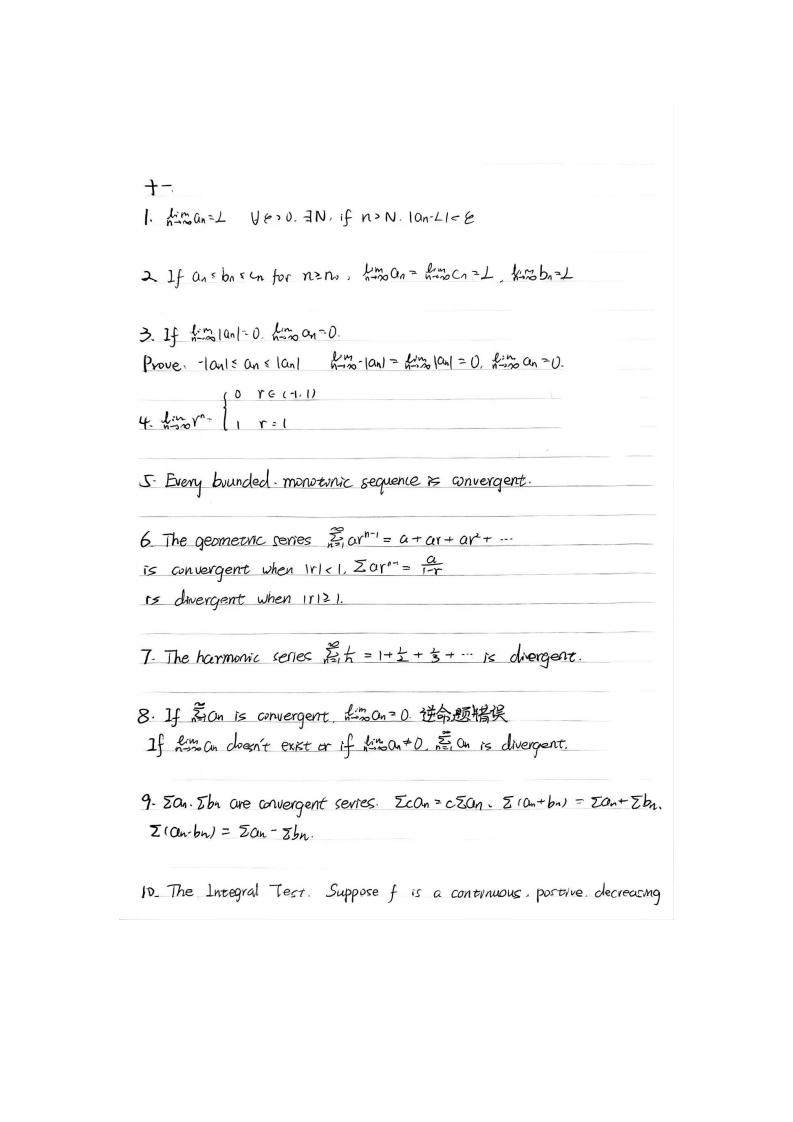 十一
1. lim_{n→∞} an = L  ∀ε>0. ∃N, if n>N. |an-L|<ε
2. If an ≤ bn ≤ cn for n≥n₀, lim_{n→∞} an = lim_{n→∞} cn = L, lim_{n→∞} bn = L
3. If lim_{n→∞} |an| = 0, lim_{n→∞} an = 0.
Prove: -|an| ≤ an ≤ |an|  lim_{n→∞} -|an| = lim_{n→∞} |an| = 0, lim_{n→∞} an = 0.
4. lim_{n→∞} rⁿ = { 0  r∈(-1,1)
1  r=1
5. Every bounded, monotonic sequence is convergent.
6. The geometric series ∑_{n=1}^{∞} ar^{n-1} = a + ar + ar² + ···
is convergent when |r|<1, ∑ar^{n-1} = a/(1-r)
is divergent when |r|≥1.
7. The harmonic series ∑_{n=1}^{∞} 1/n = 1 + 1/2 + 1/3 + ··· is divergent.
8. If ∑_{n=1}^{∞} an is convergent, lim_{n→∞} an = 0. 逆命题错误
If lim_{n→∞} an doesn't exist or if lim_{n→∞} an ≠ 0, ∑_{n=1}^{∞} an is divergent.
9. ∑an, ∑bn are convergent series. ∑can = c∑an、∑(an+bn) = ∑an + ∑bn、
∑(an-bn) = ∑an - ∑bn.
10. The Integral Test. Suppose f is a continuous, positive, decreasing